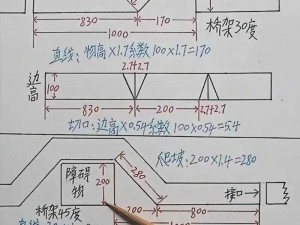 830 170
1000
桥架30度
直线：物高×1.7系数100×1.7=170
2.7+2.7
边高
100
830
1000
2.7+2.7
切口：边高×0.54系数100×0.54=5.4
障碍物
200
280
爬坡：200×1.4=280
接口
桥架45度
200 800